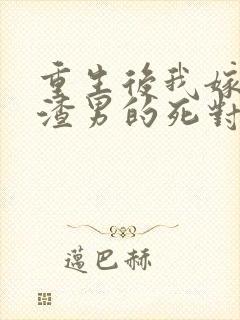 重生後我嫁
渣男的死對
蘧巴赫